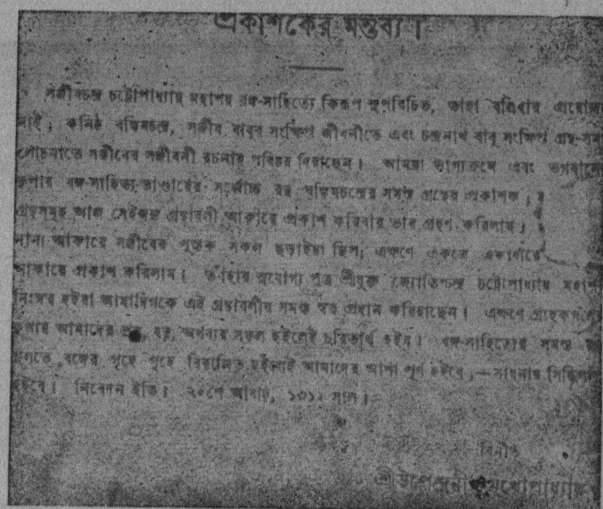 প্রকাশকের মন্তব্য।
সঞ্জীবচন্দ্র চট্টোপাধ্যায় মহাশয় বঙ্গ-সাহিত্যে কিরূপ সুপরিচিত, তাহা বলিবার প্রয়োজন
নাই; কনিষ্ঠ বঙ্কিমচন্দ্র, সঞ্জীব বাবুর সংক্ষিপ্ত জীবনীতে এবং চন্দ্রনাথ বাবু সংক্ষিপ্ত গ্রন্থ-সমা
লোচনাতে সঞ্জীবের সঞ্জীবনী রচনার পরিচয় দিয়াছেন। আমরা ভাগ্যক্রমে এবং ভগবানের
কৃপায় বঙ্গ-সাহিত্য-ভাণ্ডারের সর্ব্বোচ্চ রত্ন বঙ্কিমচন্দ্রের সমস্ত গ্রন্থের প্রকাশক;
গ্রন্থসমূহ আজ সেইজন্য গ্রন্থাবলী আকারে প্রকাশ করিবার ভার গ্রহণ করিলাম।
নানা আকারে সঞ্জীবের পুস্তক সকল ছড়াইয়া ছিল; এক্ষণে একত্রে
আকারে প্রকাশ করিলাম। তাঁহার সুযোগ্য পুত্র শ্রীযুক্ত জ্যোতিশচন্দ্র চট্টোপাধ্যায় মহাশয়
নিঃস্বত্ব হইয়া আমাদিগকে এই গ্রন্থাবলীর সমস্ত স্বত্ব প্রদান করিয়াছেন। এক্ষণে গ্রাহকগণের
কৃপায় আমাদের শ্রম, যত্ন, অর্থব্যয় সফল হইলেই চরিতার্থ হইব। বঙ্গ-সাহিত্যের সমস্ত
বঙ্গের গৃহে গৃহে বিরাজিত হইলেই আমাদের আশা পূর্ণ হইবে,—সাধনায় সিদ্ধিলাভ
হইবে। নিবেদন ইতি। ২০শে আষাঢ়, ১৩১১ সাল।
বিনীত
শ্রীউপেন্দ্রনাথ মুখোপাধ্যায়